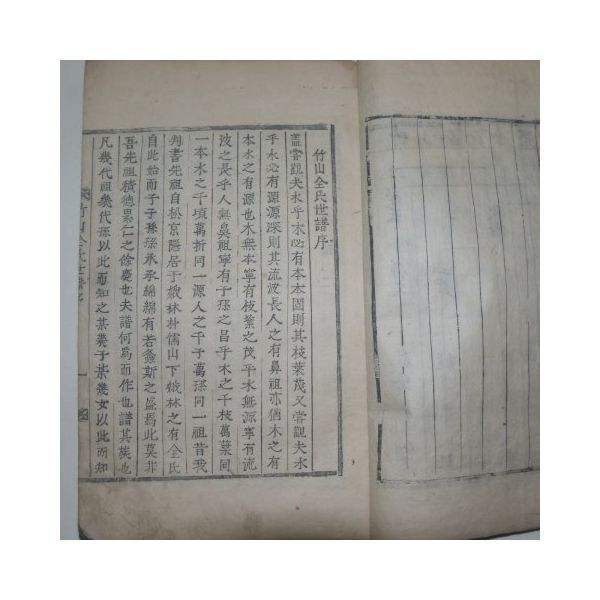 竹山全氏世譜序
蓋嘗觀夫木乎木必有本本固則其枝葉茂又嘗觀夫水
乎水必有源源深則其流波長人之有鼻祖亦猶木之有
本水之有源也木無本寧有枝葉之茂乎水無源寧有流
波之長乎人無鼻祖寧有子孫之昌乎木之千枝萬葉同
一本水之千頃萬折同一源人之千子萬孫同一祖昔我
判書先祖自松京隱居于嶶林朴儒山下嶶林之有全氏
自此始而子子孫孫承承綿綿有若螽斯之盛曷此莫非
吾先祖積德累仁之餘慶也夫譜何爲而作也譜其族也
凡幾代祖幾代孫以此而知之某幾子某幾女以此而知
竹山全氏世譜序